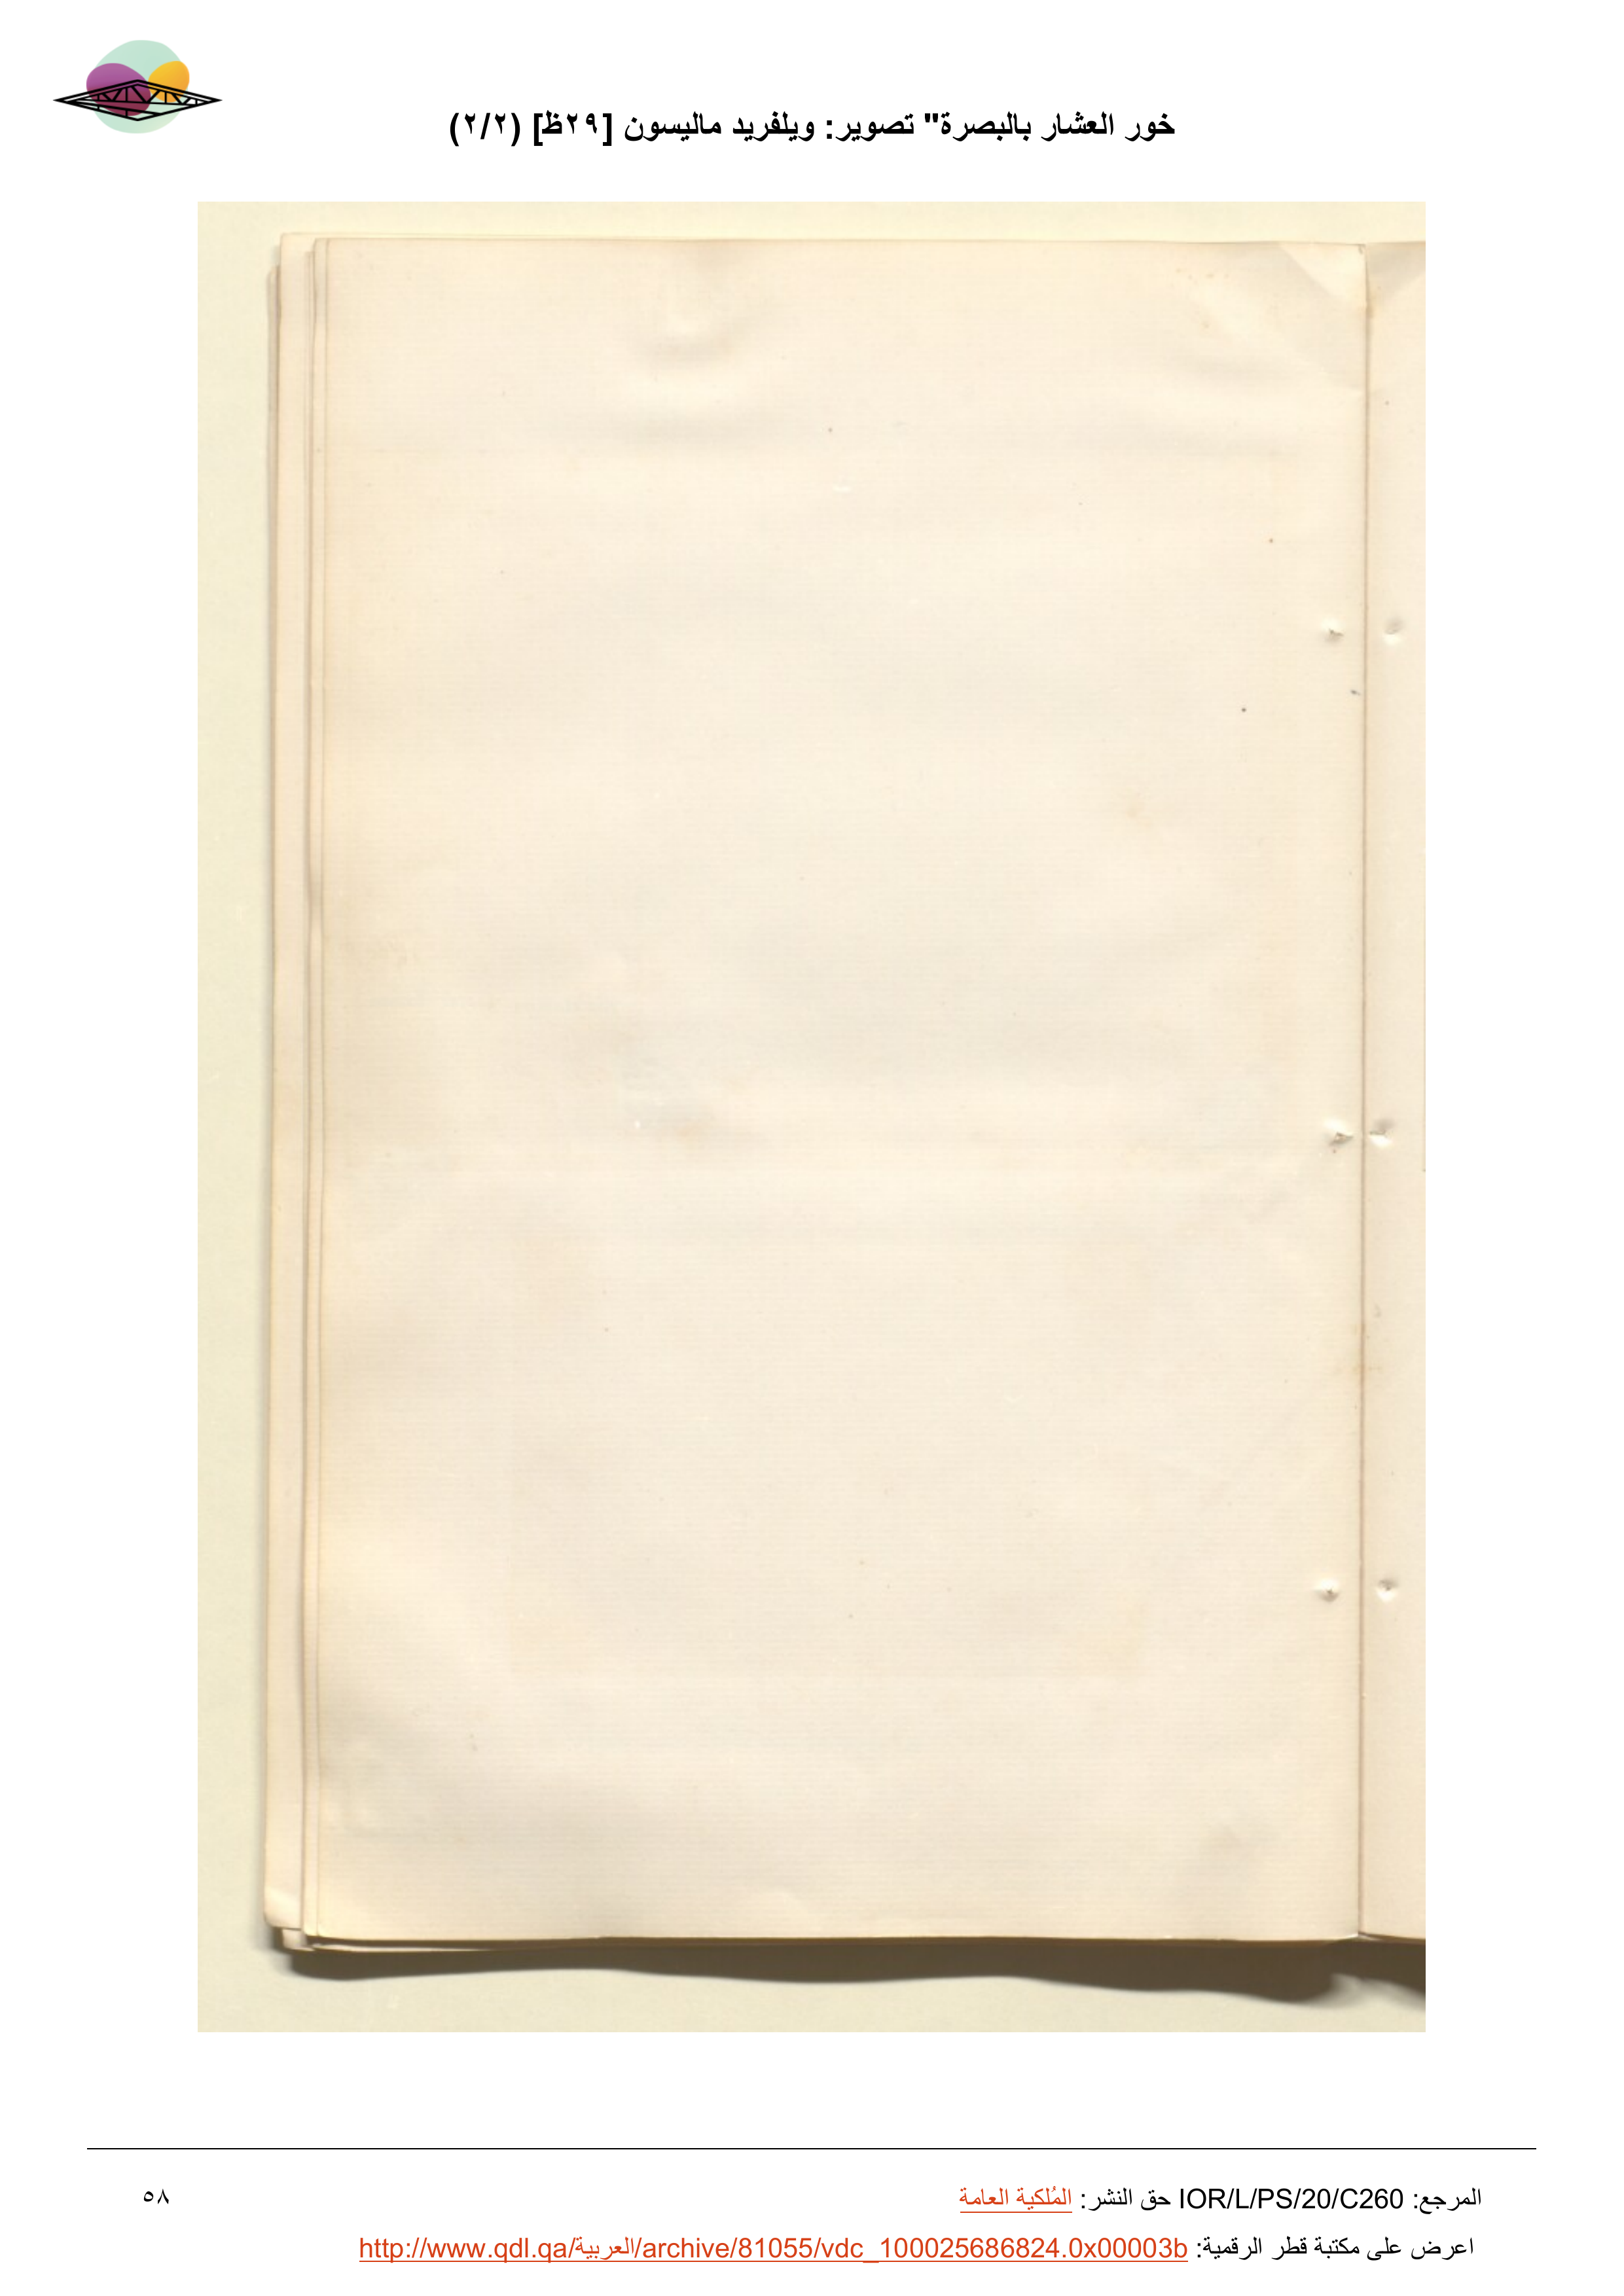 خور العشار بالبصرة" تصوير: ويلفريد ماليسون [٢٩ظ] (٢/٢)
المرجع: IOR/L/PS/20/C260 حق النشر: المُلكية العامة
٥٨
اعرض على مكتبة قطر الرقمية: http://www.qdl.qa/العربية/archive/81055/vdc_100025686824.0x00003b